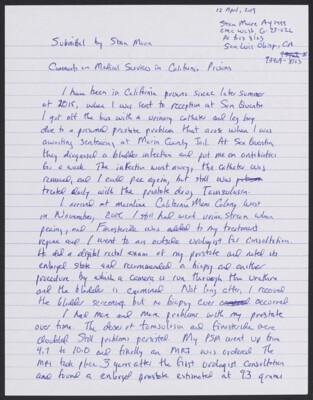 12 April, 2019
Stan Moore AY1999
CMC West, G-23-22L
PO Box 8103
San Luis Obispo, CA
93409-8103
Submitted by Stan Moore
Comments on Medical Services in California Prisons
I have been in California prisons since later summer
of 2015, when I was sent to reception at San Quentin
I got off the bus with a urinary catheter and leg bag
due to a personal prostate problem that arose when I was
awaiting sentencing at Marin County Jail. At San Quentin
they diagnosed a bladder infection and put me on antibiotics
for a week. The infection went away, the catheter was
removed, and I could pee again, but still was
treated daily with the prostate drug Tamsulosin.
I arrived at mainline California Mens Colony West
in November, 2015 I still had weak urine stream when
peeing, and Finasteride was added to my treatment
regime and I went to an outside urologist for consultation.
He did a digital rectal exam of my prostate and noted its
enlarged state and recommended a biopsy and another
procedure by which a camera is run through the urethra
and the bladder is examined. Not long after, I received
the bladder screening but no biopsy ever occurred
I had more and more problems with my prostate
over time. The doses of tamsulosin and finasteride were
doubled Still problems persisted. My PSA went up from
4.7 to 10.0 and finally an MRI was ordered. The
MRI took place 3 years after the first urologist consultation
and found a enlarged prostate estimated at 93 grams